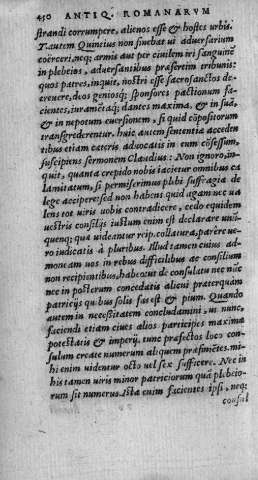 450 ANTIQ. ROMANARVM
strandi corrumpere, alienos esse & hostes urbis.
T. autem Quintius non sinebat ui aduersarium
coërceri, neq; armis aut per ciuilem iri sanguinē
in plebeios, aduersantibus præsertim tribunis:
quos patres, inquit, nostri esse sacrosanctos de-
creuere, deos geniosq; sponsores pactionum fa-
cientes, iuramētaq; dantes maxima, & in suā,
& in nepotum euersionem, si quid cōpositorum
transgrederentur. huic autem sententiæ acceden
tibus etiam cæteris aduocatis in eum cōsessum,
suscipiens sermonem Claudius: Non ignoro, in-
quit, quanta crepido nobis iaciatur omnibus ca
lamitatum, si permiserimus plebi suffragia de
lege accipere: sed non habens quid agam nec ua
lens tot uiris uobis contradicere, cedo equidem
uestris consilijs: iustum enim est declarare unū-
quenq; quæ uideantur reip. collatura, parere ue-
ro iudicatis à pluribus. Illud tamen cuius ad-
moneam uos in rebus difficilibus ac consilium
non recipientibus, habeo: ut de consulatu nec nūc
nec in posterum concedatis alicui præterquam
patricijs quibus solis fas est & pium. Quando
autem in necessitatem concludamini, ut nunc,
faciendi etiam ciues alios participes maximæ
potestatis & imperij. tunc præfectos loco con-
sulum create numerum aliquem præfinētes. mi-
hi enim uidentur octo uel sex sufficere. Nec in
his tamen uiris minor patriciorum quā plebeio-
rum sit numerus. Ista enim facientes ipsi, neq;
consul